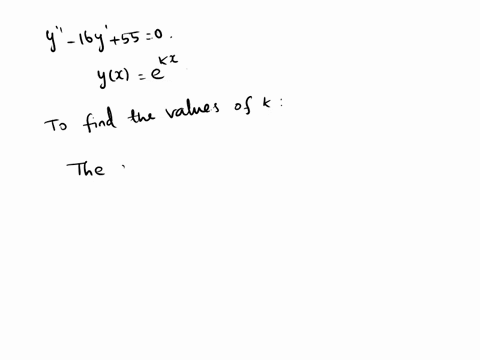 y'' - 16y' + 55 = 0.
y(x) = e^{kx}
To find the values of k :
The